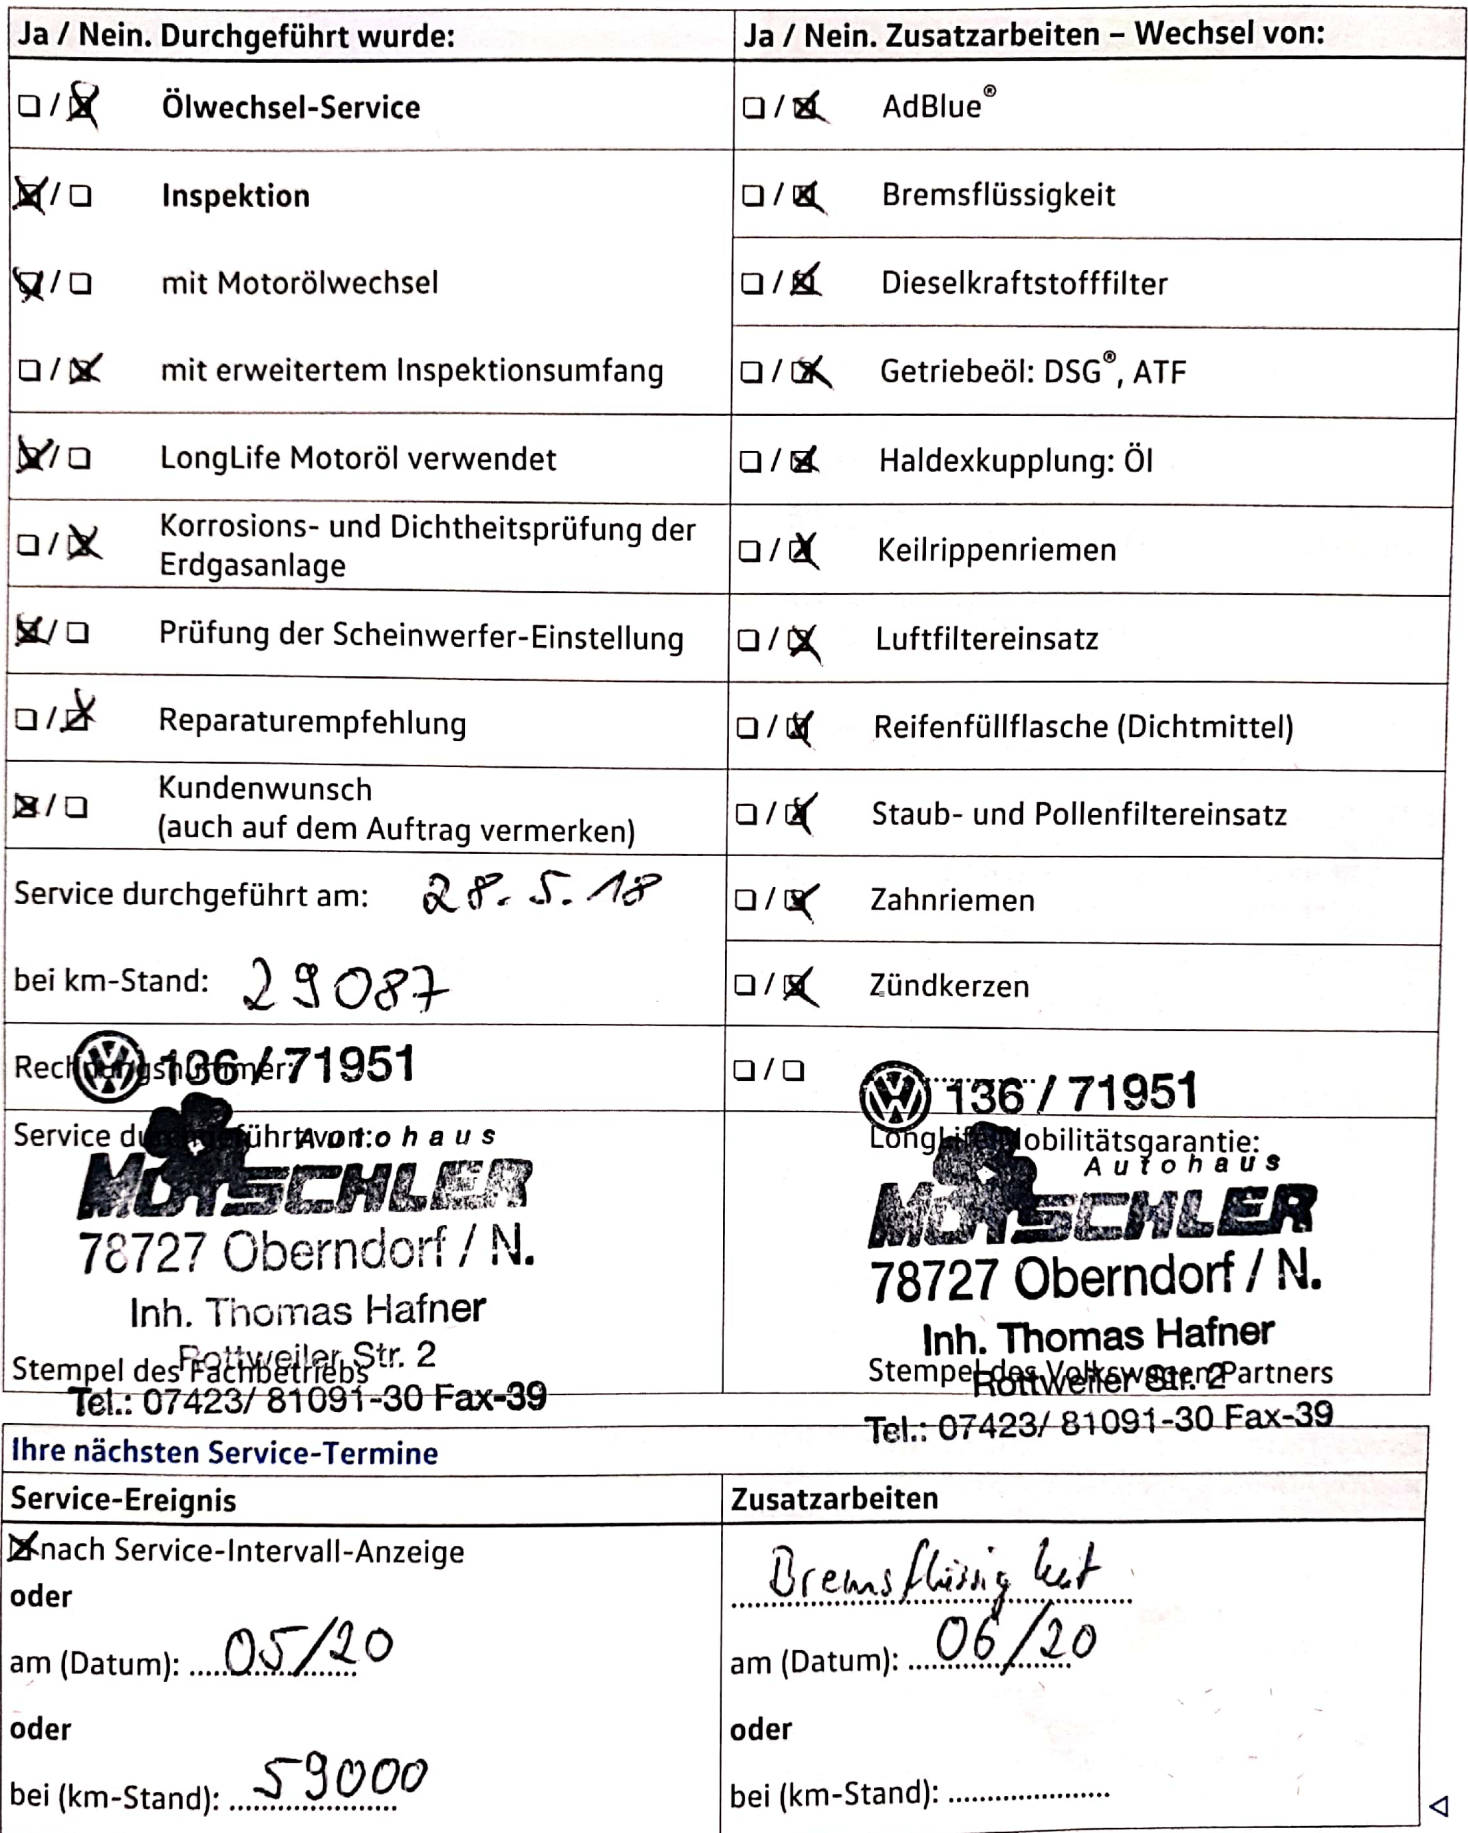 Ja / Nein. Durchgeführt wurde:
Ölwechsel-Service
Inspektion
mit Motorölwechsel
mit erweitertem Inspektionsumfang
LongLife Motoröl verwendet
Korrosions- und Dichtheitsprüfung der
Erdgasanlage
Prüfung der Scheinwerfer-Einstellung
Reparaturempfehlung
Kundenwunsch
(auch auf dem Auftrag vermerken)
Service durchgeführt am: 28.5.18
bei km-Stand: 29087
Rechnungsnummer:
136 / 71951
Service durchgeführt von:
Autohaus
MOTSCHLER
78727 Oberndorf / N.
Inh. Thomas Hafner
Rottweiler Str. 2
Stempel des Fachbetriebs
Tel.: 07423/ 81091-30 Fax-39
Ja / Nein. Zusatzarbeiten – Wechsel von:
AdBlue®
Bremsflüssigkeit
Dieselkraftstofffilter
Getriebeöl: DSG®, ATF
Haldexkupplung: Öl
Keilrippenriemen
Luftfiltereinsatz
Reifenfüllflasche (Dichtmittel)
Staub- und Pollenfiltereinsatz
Zahnriemen
Zündkerzen
136 / 71951
LongLife Mobilitätsgarantie:
Autohaus
MOTSCHLER
78727 Oberndorf / N.
Inh. Thomas Hafner
Rottweiler Str. 2
Stempel des Volkswagen Partners
Tel.: 07423/ 81091-30 Fax-39
Ihre nächsten Service-Termine
Service-Ereignis
nach Service-Intervall-Anzeige
oder
am (Datum): 05/20
oder
bei (km-Stand): 59000
Zusatzarbeiten
Bremsflüssigkeit
am (Datum): 06/20
oder
bei (km-Stand):